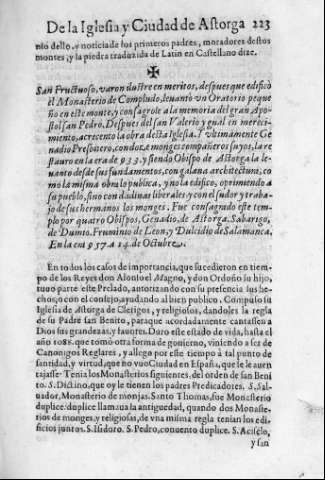 De la Iglesia y Ciudad de Astorga 223
nio desto, y noticia da los primeros padres, moradores destos
montes, y la piedra traduzida de Latin en Castellano dize.
✠
San Fructuoso, varon ilustre en meritos, despues que edificò
el Monasterio de Compludo, leuantò vn Oratorio peque
ño en este monte, y consagrole a la memoria del gran Apo-
stol san Pedro. Despues del san Valerio y gual en mereci-
miento, acrecento la obra desta Iglesia. Y vltimamente Ge
nadio Presbitero, con doze monges compañeros suyos, la re
stauro en la era de 933. y siendo Obispo de Astorga la le-
uanto desde sus fundamentos, con galana architectura, co
mo la misma obra lo publica, y no la edificò, oprimiendo a
su pueblo, sino con dadiuas liberales, y con el sudor y traba-
jo de sus hermanos los monges. Fue consagrado este tem-
plo por quatro Obispos, Genadio, de Astorga. Sabarigo,
de Dumio. Fruminio de Leon, y Dulcidio de Salamanca.
En la era 957. a 24. de Octubre.
En todos los casos de importancia, que sucedieron en tiem-
po de los Reyes don Alonso el Magno, y don Ordoño su hijo,
tuuo parte este Prelado, autorizando con su presencia sus he-
chos, o con el consejo, ayudando al bien publico. Compuso su
Iglesia de Astorga de Clerigos, y religiosos, dandoles la regla
de su Padre san Benito, paraque acordadamente cantassen a
Dios sus grandezas, y fauores. Duro este estado de vida, hasta el
año 1085. que tomò otra forma de gouierno, viniendo a ser de
Canonigos Reglares, y allego por este tiempo à tal punto de
santidad, y virtud, que no vuo Ciudad en España, que le le auen
tajasse. Tenia los Monasterios siguientes, del orden de san Beni
to. S. Dictino, que oy le tienen los padres Predicadores. S. Sal-
uador, Monasterio de monjas. Santo Thomas, fue Monasterio
duplice: duplice llamaua la antiguedad, quando dos Monaste-
rios de monges, y religiosas, de vna misma regla tenian los edi-
ficios juntos. S. Isidoro. S. Pedro, conuento duplice. S. Acisclo,
y san